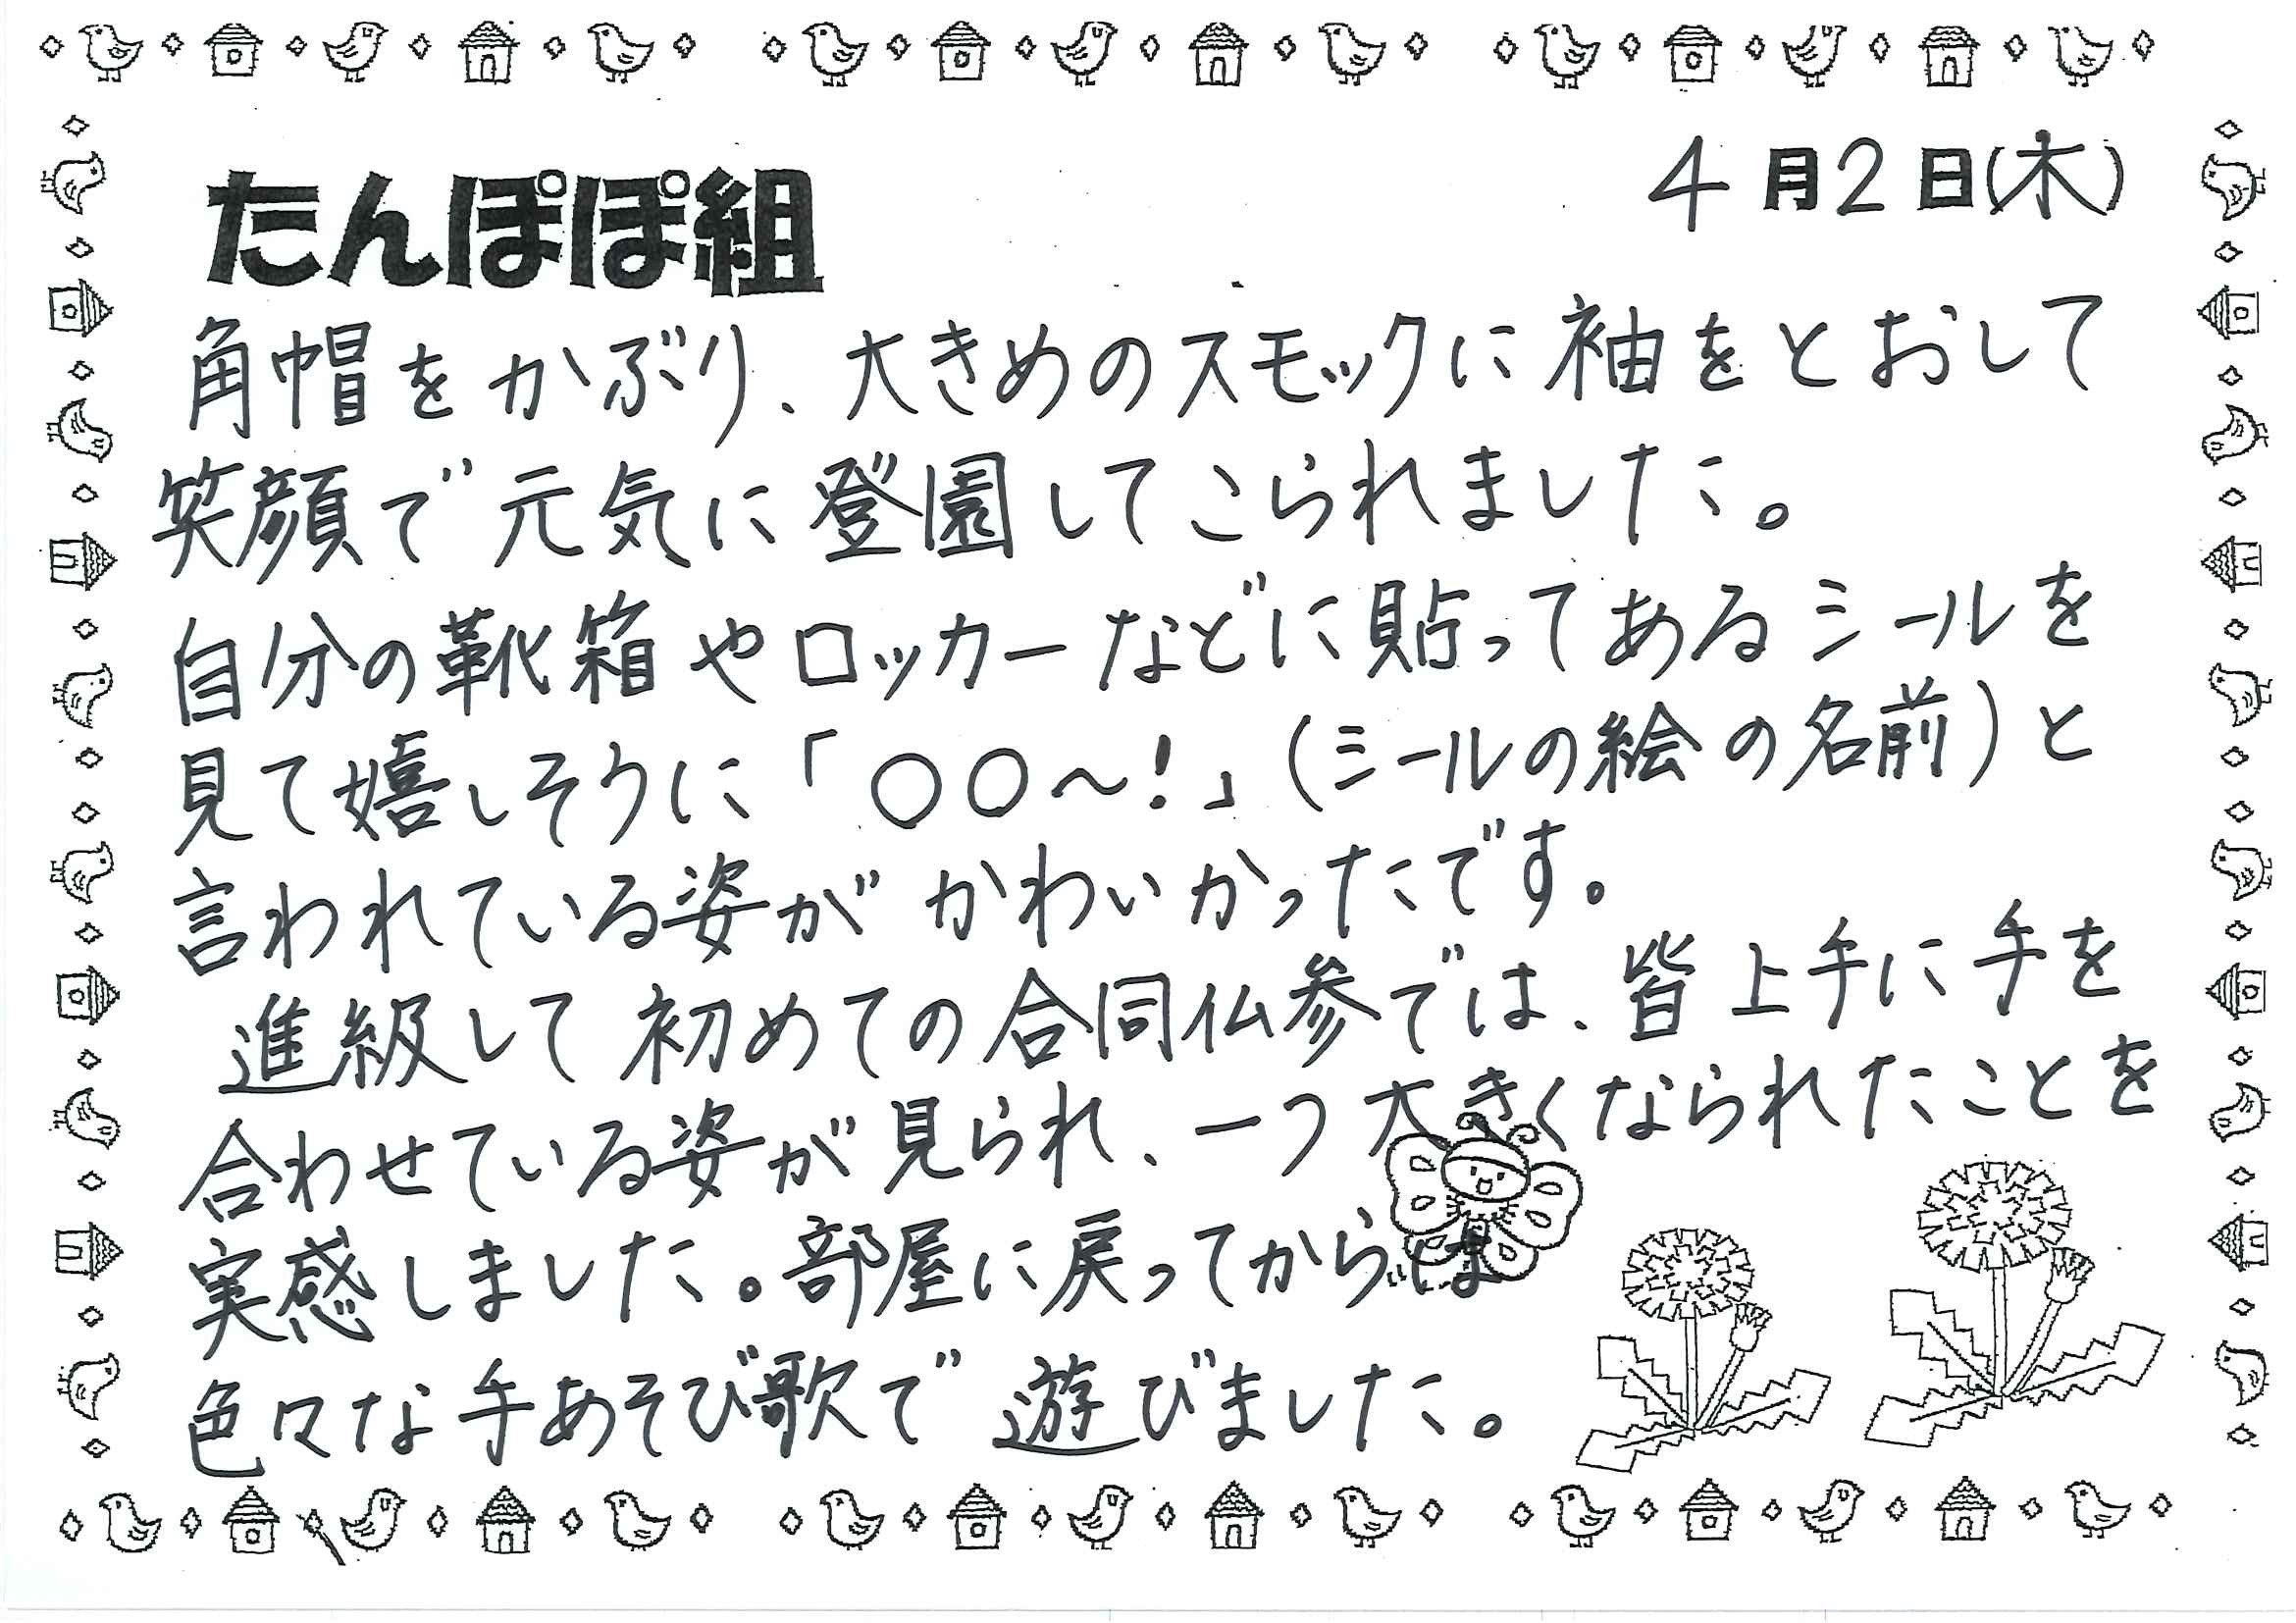 たんぽぽ組
4月2日(木)
角帽をかぶり、大きめのスモックに袖をとおして
笑顔で元気に登園してこられました。
自分の靴箱やロッカーなどに貼ってあるシールを
見て嬉しそうに「〇〇〜!」(シールの絵の名前)と
言われている姿がかわいかったです。
進級して初めての合同仏参では、皆上手に手を
合わせている姿が見られ、一つ大きくなられたことを
実感しました。部屋に戻ってからは
色々な手あそび歌で遊びました。